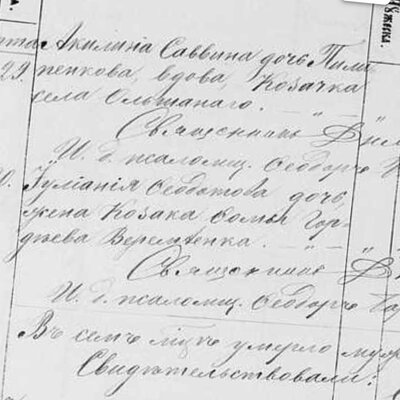 Акилина Саввина дочь Пили-
29. пенкова, вдова, Козачка
села Ольшанаго.
Священникъ
И. д. псаломщ. Ѳеодоръ
Іуліанія Ѳеодотова дочь,
жена Козака Ѳомы Гор-
дѣева Веремѣенка.
Священникъ
И. д. псаломщ. Ѳеодоръ
Въ семъ м-цѣ умерло муж
Свидѣтельствовали: